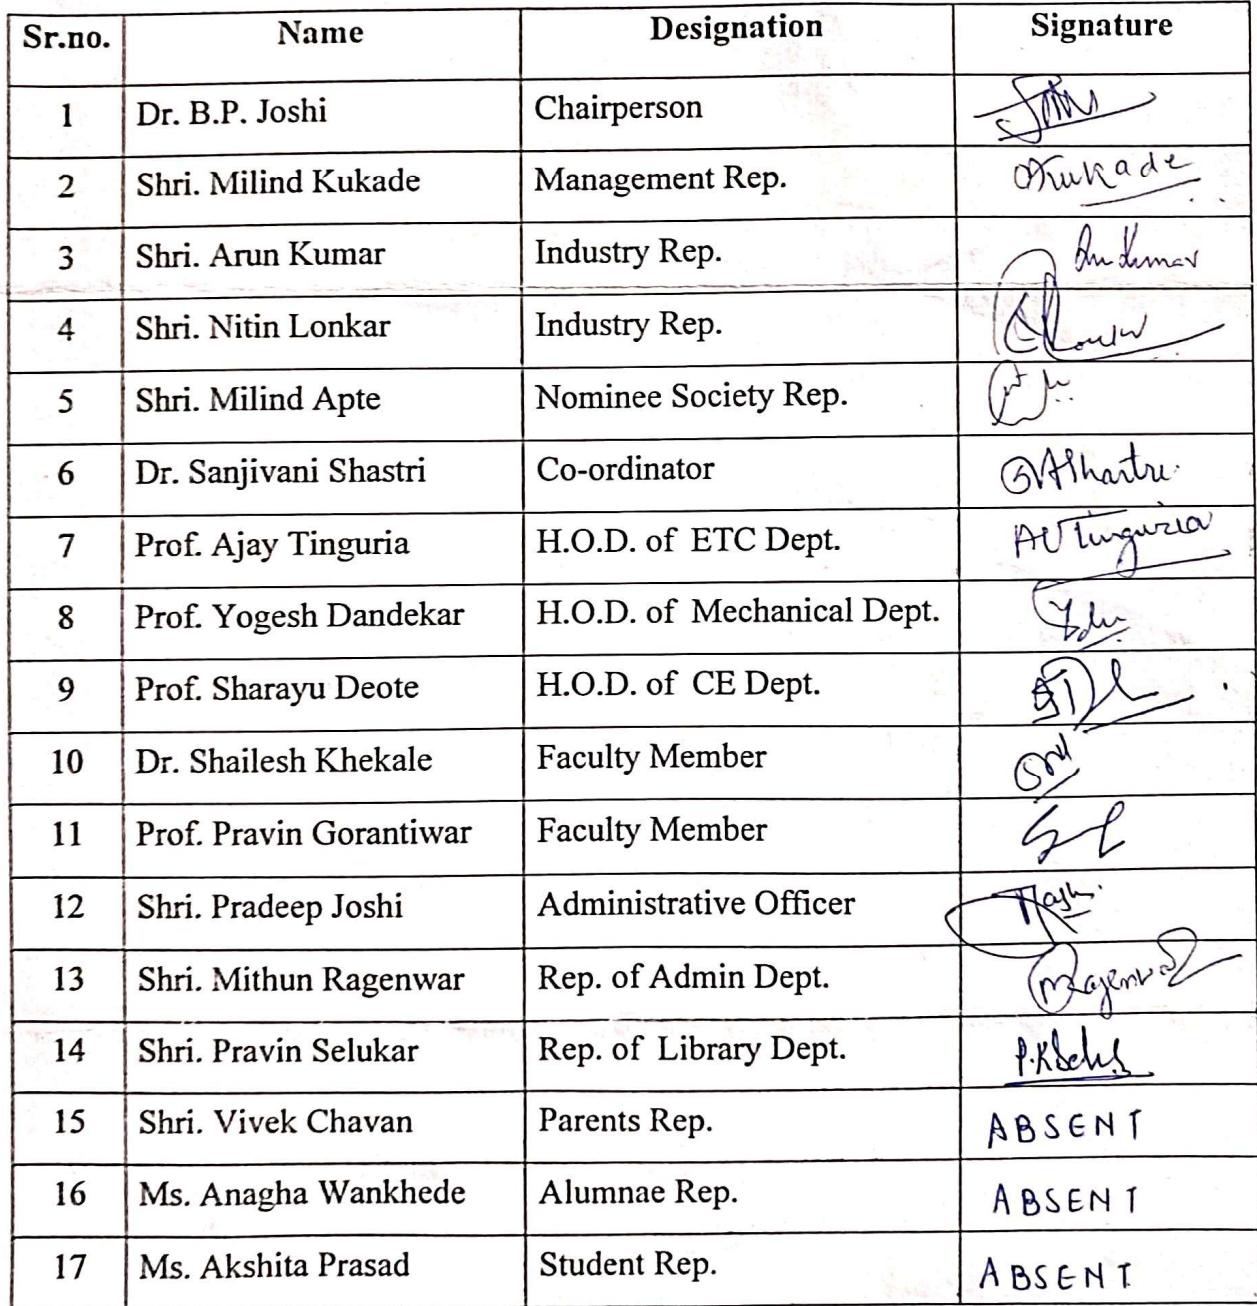 Sr.no. Name Designation Signature
1 Dr. B.P. Joshi Chairperson
2 Shri. Milind Kukade Management Rep. Kukade
3 Shri. Arun Kumar Industry Rep.
4 Shri. Nitin Lonkar Industry Rep.
5 Shri. Milind Apte Nominee Society Rep.
6 Dr. Sanjivani Shastri Co-ordinator
7 Prof. Ajay Tinguria H.O.D. of ETC Dept. AUTinguria
8 Prof. Yogesh Dandekar H.O.D. of Mechanical Dept.
9 Prof. Sharayu Deote H.O.D. of CE Dept.
10 Dr. Shailesh Khekale Faculty Member
11 Prof. Pravin Gorantiwar Faculty Member
12 Shri. Pradeep Joshi Administrative Officer
13 Shri. Mithun Ragenwar Rep. of Admin Dept.
14 Shri. Pravin Selukar Rep. of Library Dept.
15 Shri. Vivek Chavan Parents Rep. ABSENT
16 Ms. Anagha Wankhede Alumnae Rep. ABSENT
17 Ms. Akshita Prasad Student Rep. ABSENT